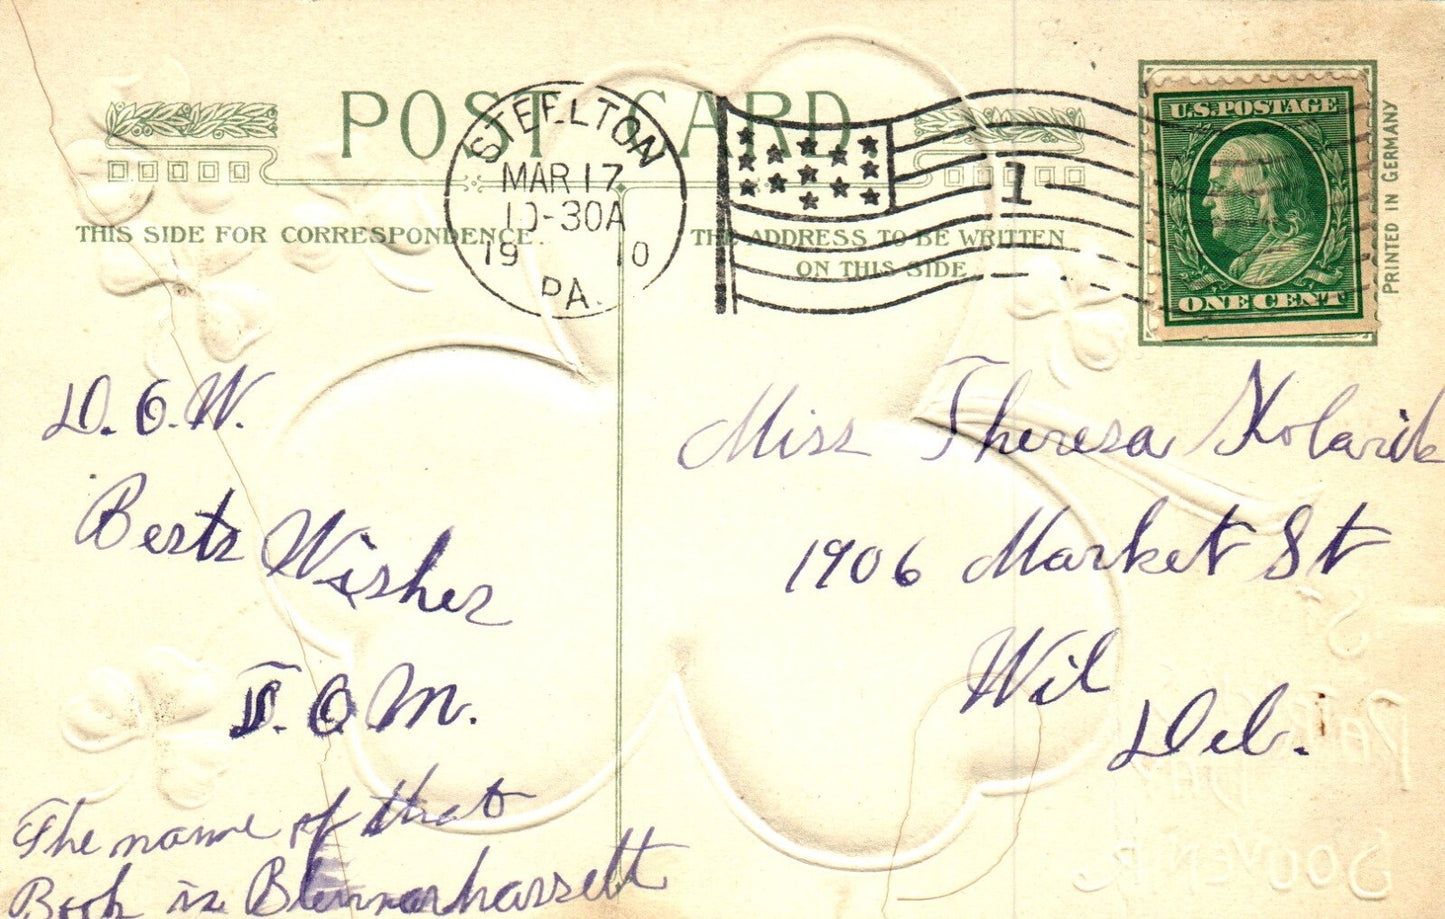 POST CARD
STEELTON
MAR 17
10-30A
1910
PA.
1
U.S. POSTAGE
ONE CENT
PRINTED IN GERMANY
THIS SIDE FOR CORRESPONDENCE.
THE ADDRESS TO BE WRITTEN
ON THIS SIDE
D. O. W.
Best Wishes
T. O. M.
The name of that
Book is Blennarhassett
Miss Theresa Kolarik
1906 Market St
Wil
Del.
ST.
PATRICK'S
DAY
SOUVENIR